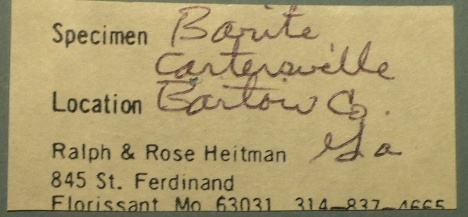 Specimen Barite
Cartersville
Location Bartow Co.
Ralph & Rose Heitman Ga
845 St. Ferdinand
Florissant Mo 63031 314-837-4665